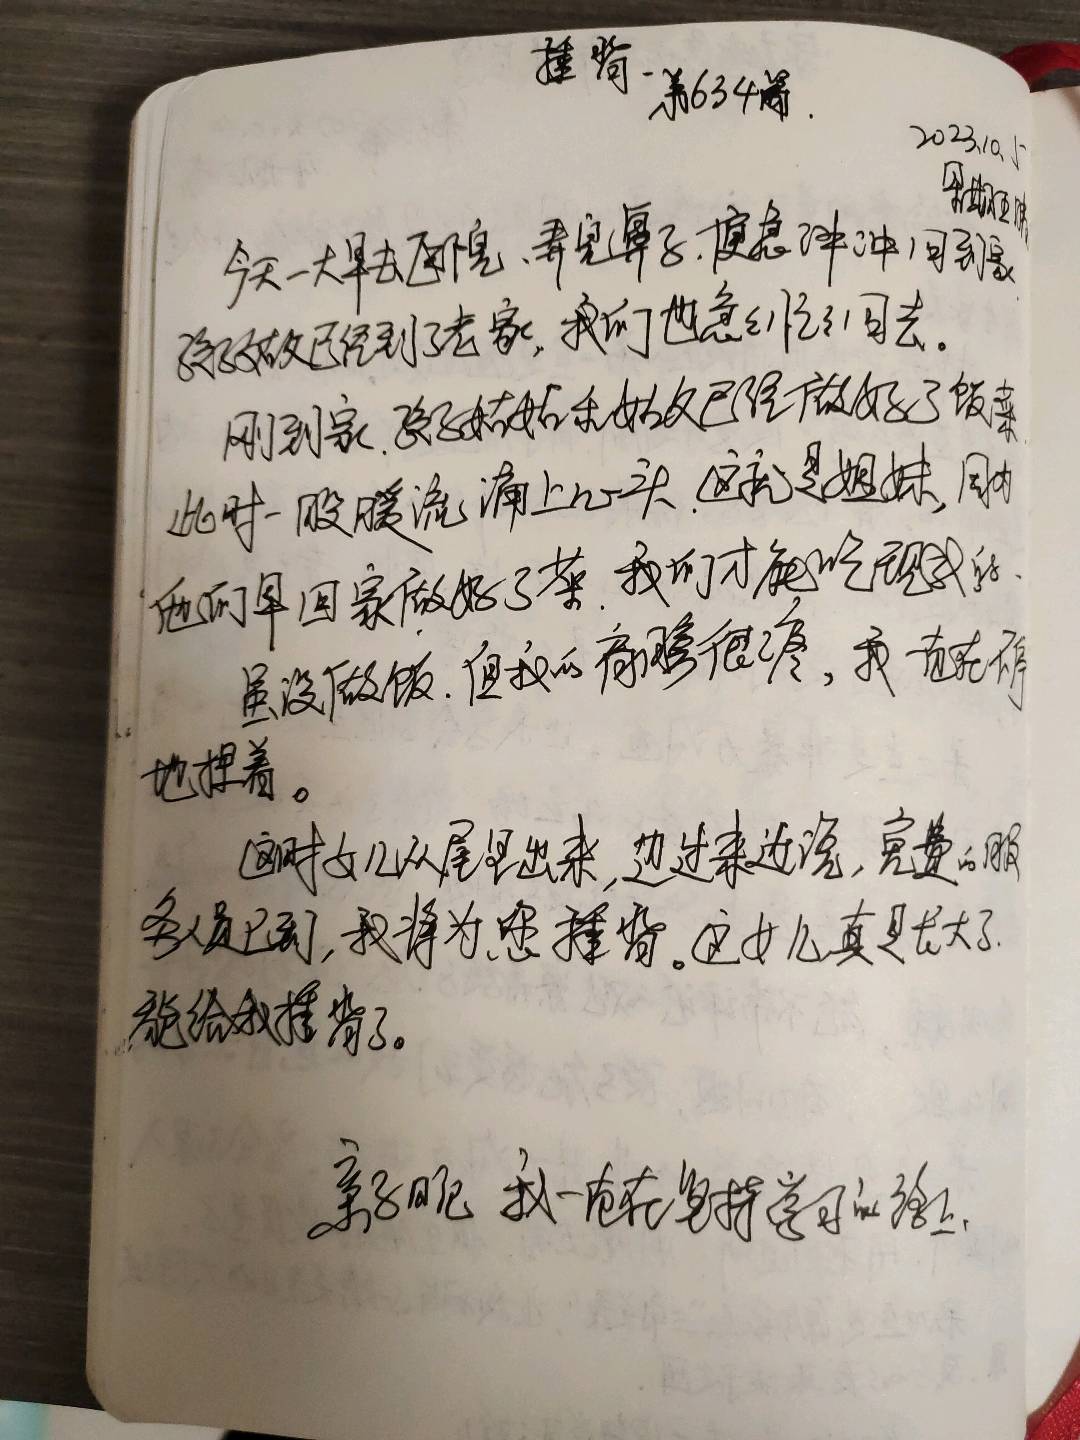 捶背
第634篇.
2023.10.5
星期五 晴
今天一大早去医院、弄完鼻子.便急冲冲回到家
孩子姑父已经到了老家,我们也急匆忙回去。
刚到家.孩子姑姑和姑父已经做好了饭菜
此时一股暖流涌上心头.这就是姐妹,因为
他们早回家做好了菜.我们才能吃现成的.
虽没做饭.但我的肩膀很疼,我一直在不停
地捏着。
这时女儿从屋里出来,边过来边说,免费的服
务人员已到,我将为您捶背。这女儿真是长大了.
能给我捶背了。
亲子日记 我一直在坚持学习的路上.